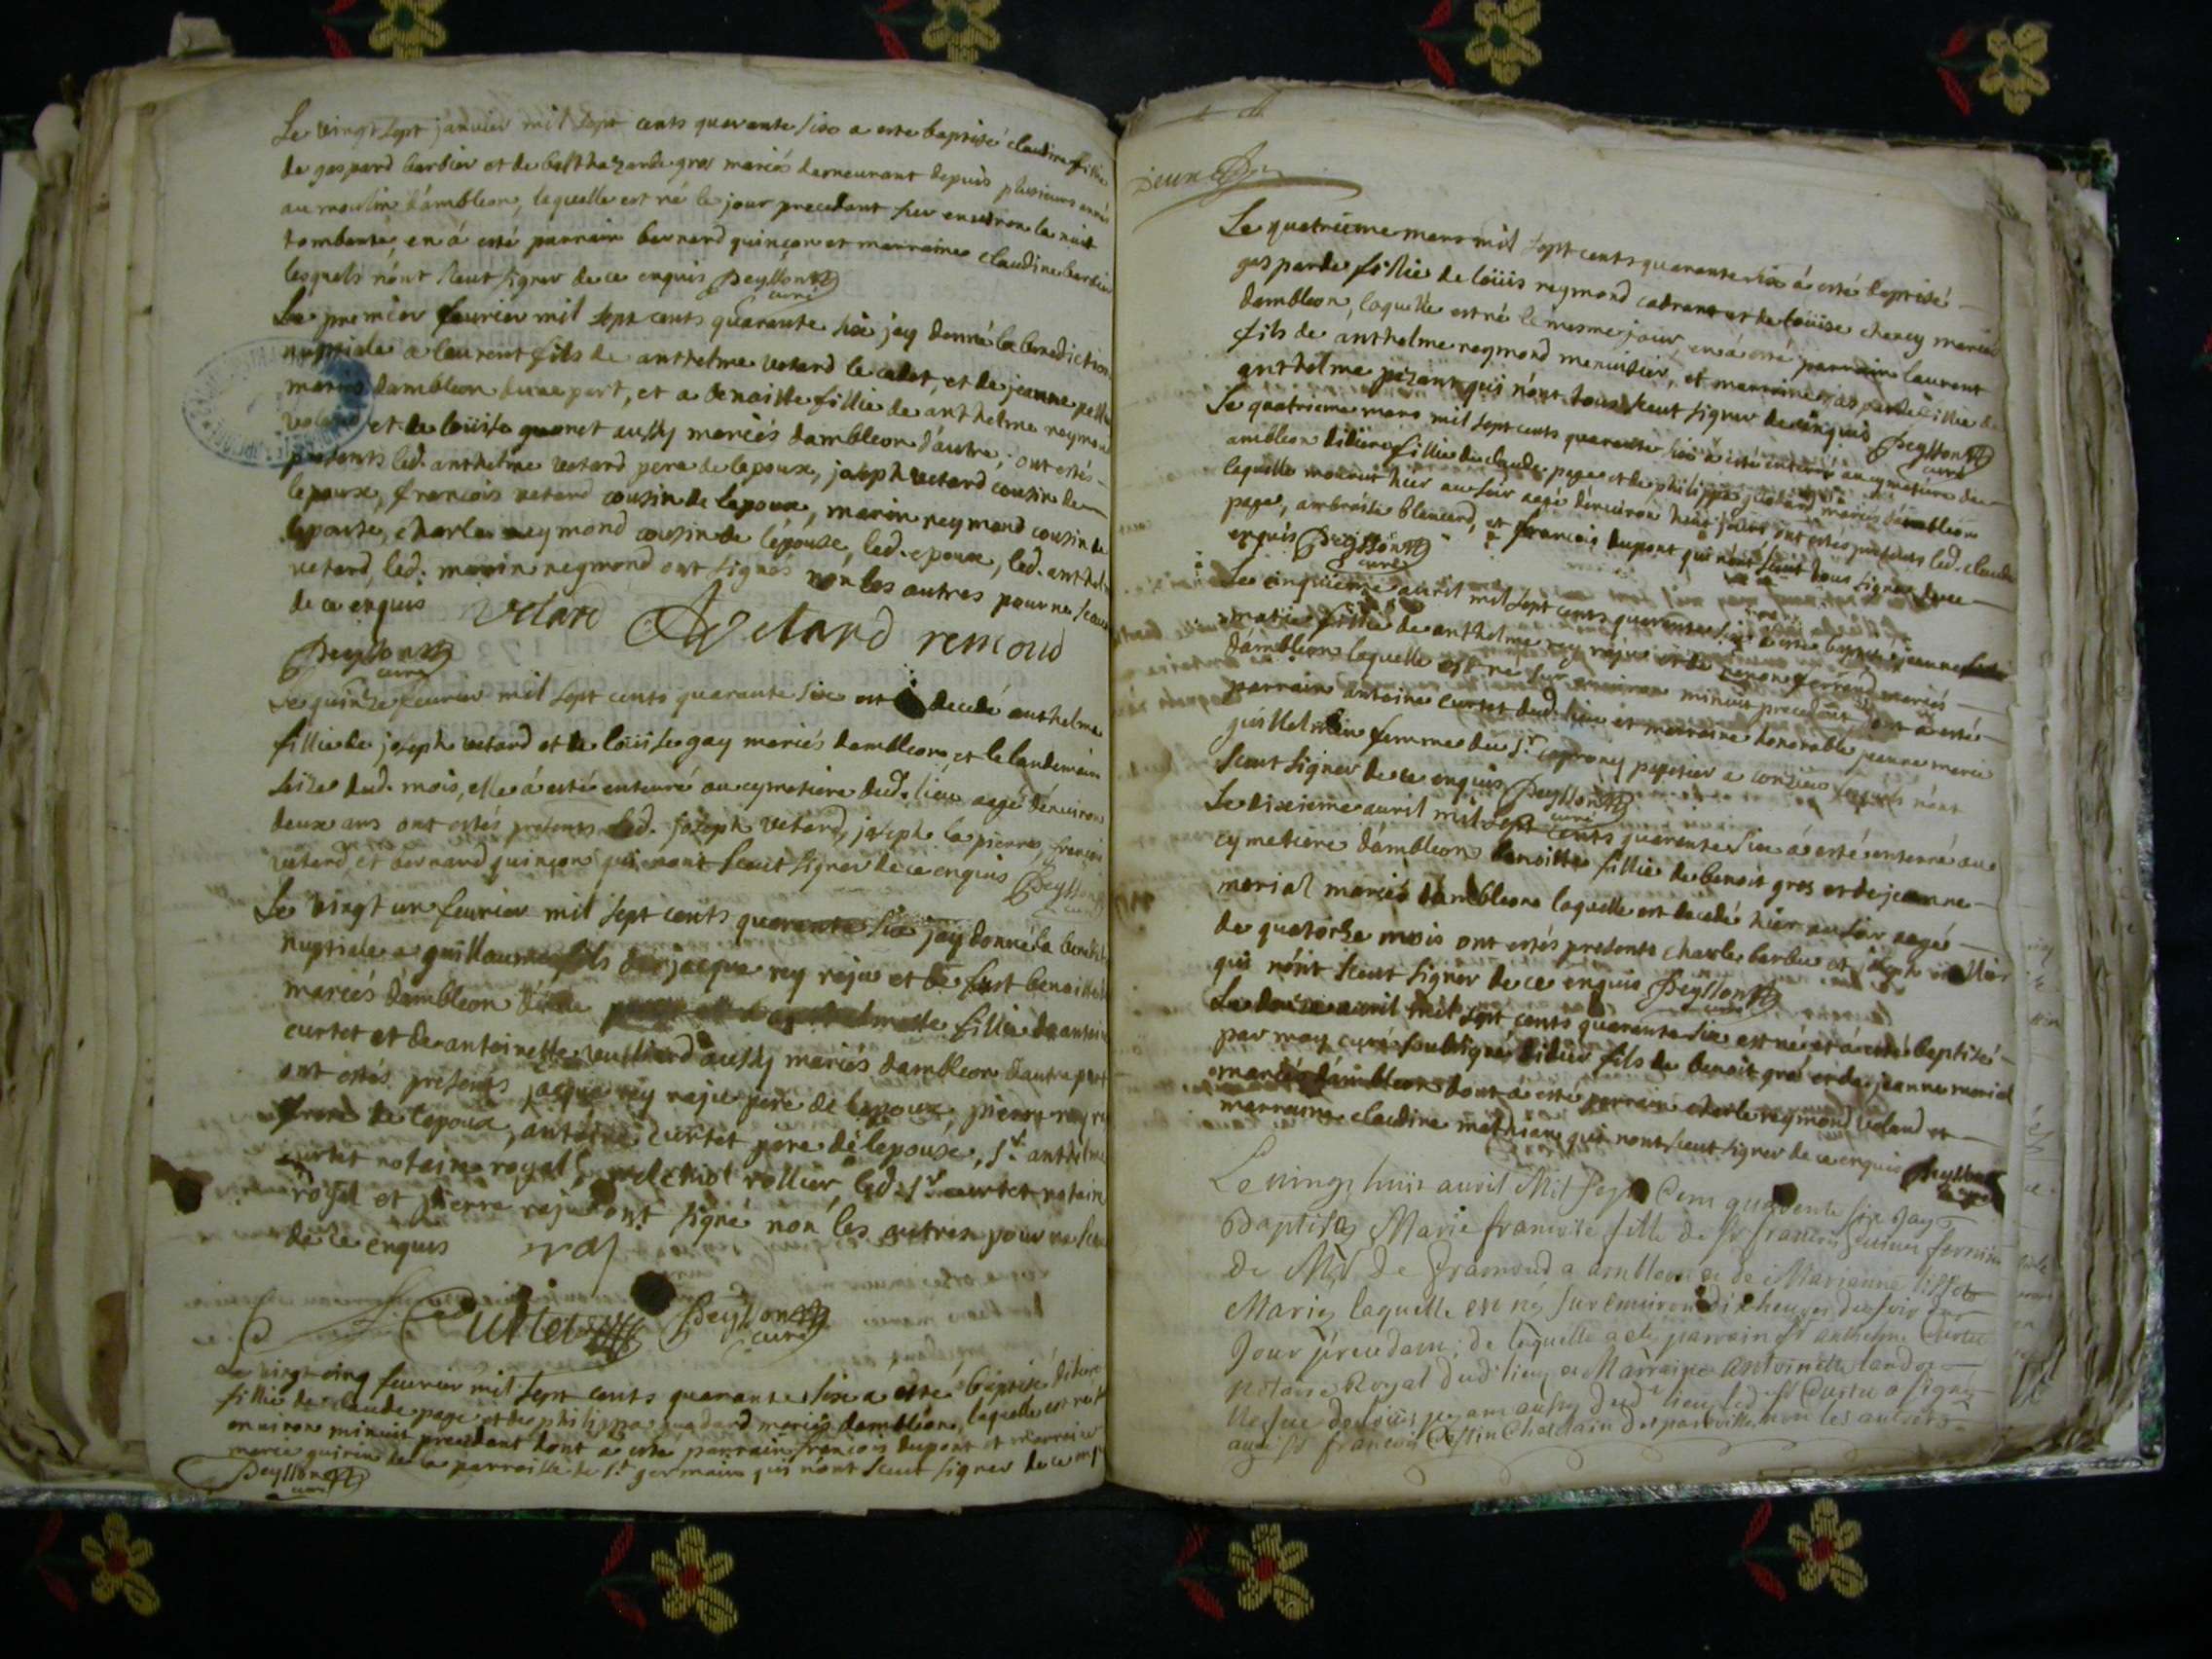 Le vingt sept janvier mil sept cents quarante six a este baptisé claudine fillie
de gaspard barbier et de balthazarde gros mariés demeurant depuis plusieurs années
au moulin d'ambleon, laquelle est né le jour precedant sur environ la nuit
tombante, en á esté parrain bernard quinçon et marraine claudine barbier
lesquels nónt sceut signer de ce enquis Peysson
curé
Le premier feurier mil sept cents quarante six jay donné la benediction
nuptiale a laurent fils de anthelme vetard le cadet, et de jeanne
mariés dambleon dune part, et a benoitte fillie de anthelme reymond
voland et de loüise quonet aussy mariés dambleon dáutre, ont estés
presents led. anthelme vetard pere de lepoux, joseph vetard cousin de
lepoux, francois vetard cousin de lepoux, marin reymond cousin de
lepouse, charle reymond cousin de lépouse, led. epoux, led. anthelme
vetard, led. marin reymond ont signés non les autres pour ne scavoir
de ce enquis vetard Vetard remond
Peysson
curé
Le quinze feurier mil sept cents quarante six est decedé anthelme
fillie de joseph vetard et de loüise gay mariés dambleon, et le landemain
seize dud. mois, elle á esté enterré au cymetiere dud. lieu aagé dénviron
deux ans ont estés presents led. joseph vetard, joseph la pierre, francois
vetard, et bernard quinçon qui nont sceut signer de ce enquis Peysson
curé
Le vingt un feurier mil sept cents quarante six jay donné la benediction
nuptiale a guillaume fils de jacque rey raju et de fust benoitte
mariés dámbleon dúne fillie de antoine
curtet et de antoinette vulliard aussy mariés dambleon dautre part
ont estés presents jacque rey raju pere de lepoux, pierre rey raju
frere de lepoux, antoine curtet pere de lepouse, sr. anthelme
curtet notaire royal, melchiol rollier, led. sr. curtet notaire
royal et pierre raju ont signé non les autres pour ne scavoir
de ce enquis
Curtet Peysson
curé
Le vingt cinq feurier mil sept cents quarante six a esté baptisé didiere
fillie de claude page et de philippa guadard mariés dambléon, laquelle est né
environ minuit precedant dont a este parrain françois dupont et marraine
marie guirin de la parroisse de st. germain qui nónt sceut signer de ce enquis
Peysson
curé
Le quatrieme mars mil sept cents quarante six á esté baptisé
gasparde fillie de loüis reymond cadrant et de loüise chancy mariés
dambleon, laquelle est né le mesme jour, en á esté parrain laurent
fils de anthelme reymond menuisier, et marraine gasparde fillie de
anthelme pezant qui nónt tous sceut signer de ce enquis Peysson
curé
Le quatrieme mars mil sept cents quarante six á esté enterré au cymetiere de
ambleon didiere fillie de claude page et de philippa guadard mariés dámbleon
laquelle mourut hier au soir aagé dénviron huit jours ont estés presents led. claude
page, ambroise blancard, et francois dupont qui nónt sceut tous signer de ce
enquis Peysson
curé
Le cinquieme auril mil sept cents quarante six á este baptisé jeanne
marie fillie de anthelme rey raju et de ferrand mariés
dámbleon laquelle est né sur environ minuit precedant dont á esté
parrain antoine curtet dud. lieu et marraine honorable jeanne marie
guillelmin femme du sr. caprony papetier a conzieu lesquels nónt
sceut signer de ce enquis Peysson
curé
Le dixieme auril mil sept cents quarante six á esté enterré au
cymetiere dámbleon benoitte fillie de benoit gros et de jeanne
morial mariés dámbleon laquelle est decedé hier au soir aagé
de quatorze mois ont estés presents charle barbier et joseph
qui nónt sceut signer de ce enquis Peysson
curé
Le douze auril mil sept cents quarante six est né et á esté baptisé
par moy curé soubsigné didier fils de benoit gros et de jeanne morial
mariés dámbleon dont á esté parrain charle reymond voland et
marraine claudine mathian qui nont sceut signer de ce enquis Peysson
curé
Le vingt huit auril Mil sept Cent quarente six Jay
Baptisés Marie francoise fille de sr francois fermier
de Mr De Gramond a ambleon et de Marianne
Mariés laquelle est née sur environ dix heures du soir du
Jour précedant; de laquelle a eté parrain sr anthelme Curtet
Notaire Royal dud. lieu et Marraine antoinette
veufue de Louis pezant aussy dud. lieu led. sr Curtet a signé
avec sr francois Chatelain de non les autres